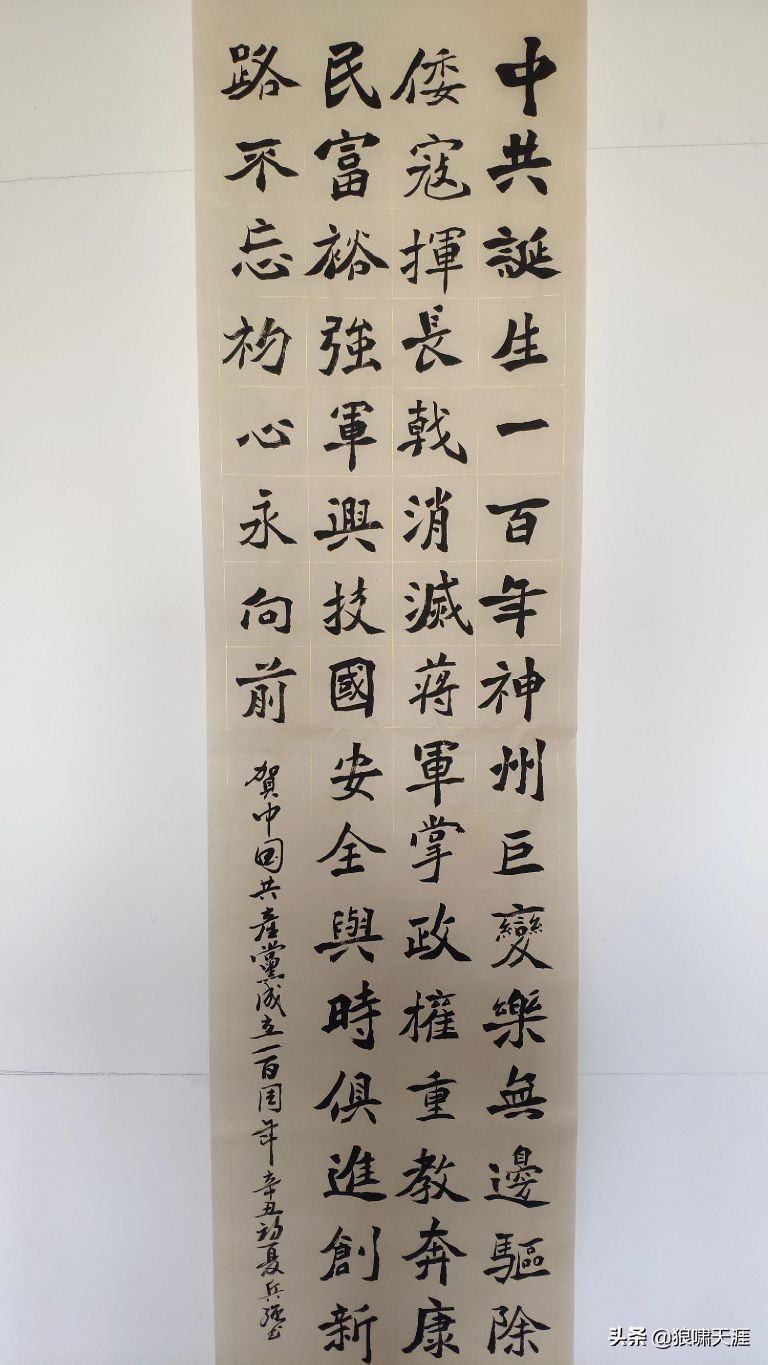 中共誕生一百年神州巨變樂無邊驅除
倭寇揮長戟消滅蒋軍掌政權重教奔康
民富裕強軍興技國安全與時俱進創新
路不忘初心永向前
賀中国共產黨成立一百周年 辛丑初夏兵强书
头条 @狼啸天涯